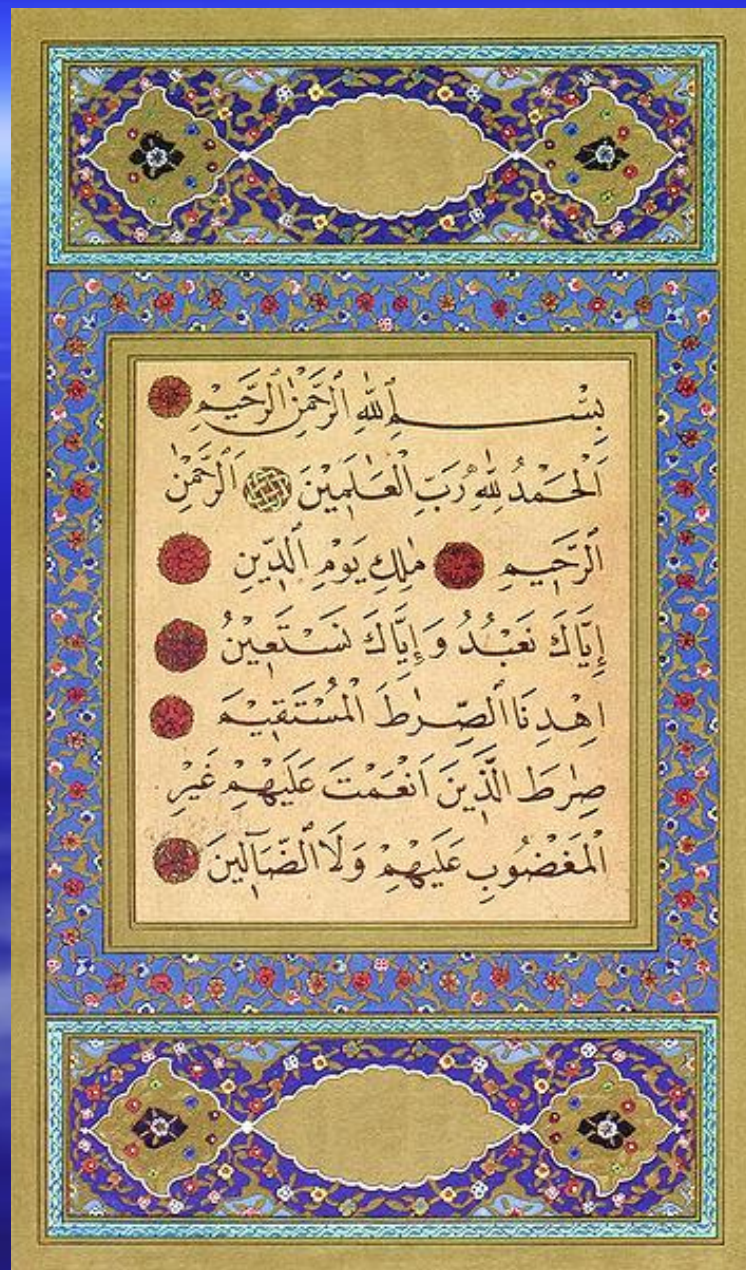 بِسْــــــمِ ٱللّٰهِ ٱلرَّحْمٰنِ ٱلرَّحِيمِ
اَلْحَمْدُ لِلّٰهِ رَبِّ ٱلْعَالَمِينَ اَلرَّحْمٰنِ
ٱلرَّحِيمِ مٰلِكِ يَوْمِ ٱلدِّينِ
إِيَّاكَ نَعْبُدُ وَإِيَّاكَ نَسْتَعِينُ
اِهْدِنَا ٱلصِّرٰطَ ٱلْمُسْتَقِيمَ
صِرٰطَ ٱلَّذِينَ اَنْعَمْتَ عَلَيْهِمْ غَيْرِ
ٱلْمَغْضُوبِ عَلَيْهِمْ وَلَا ٱلضَّآلِّينَ